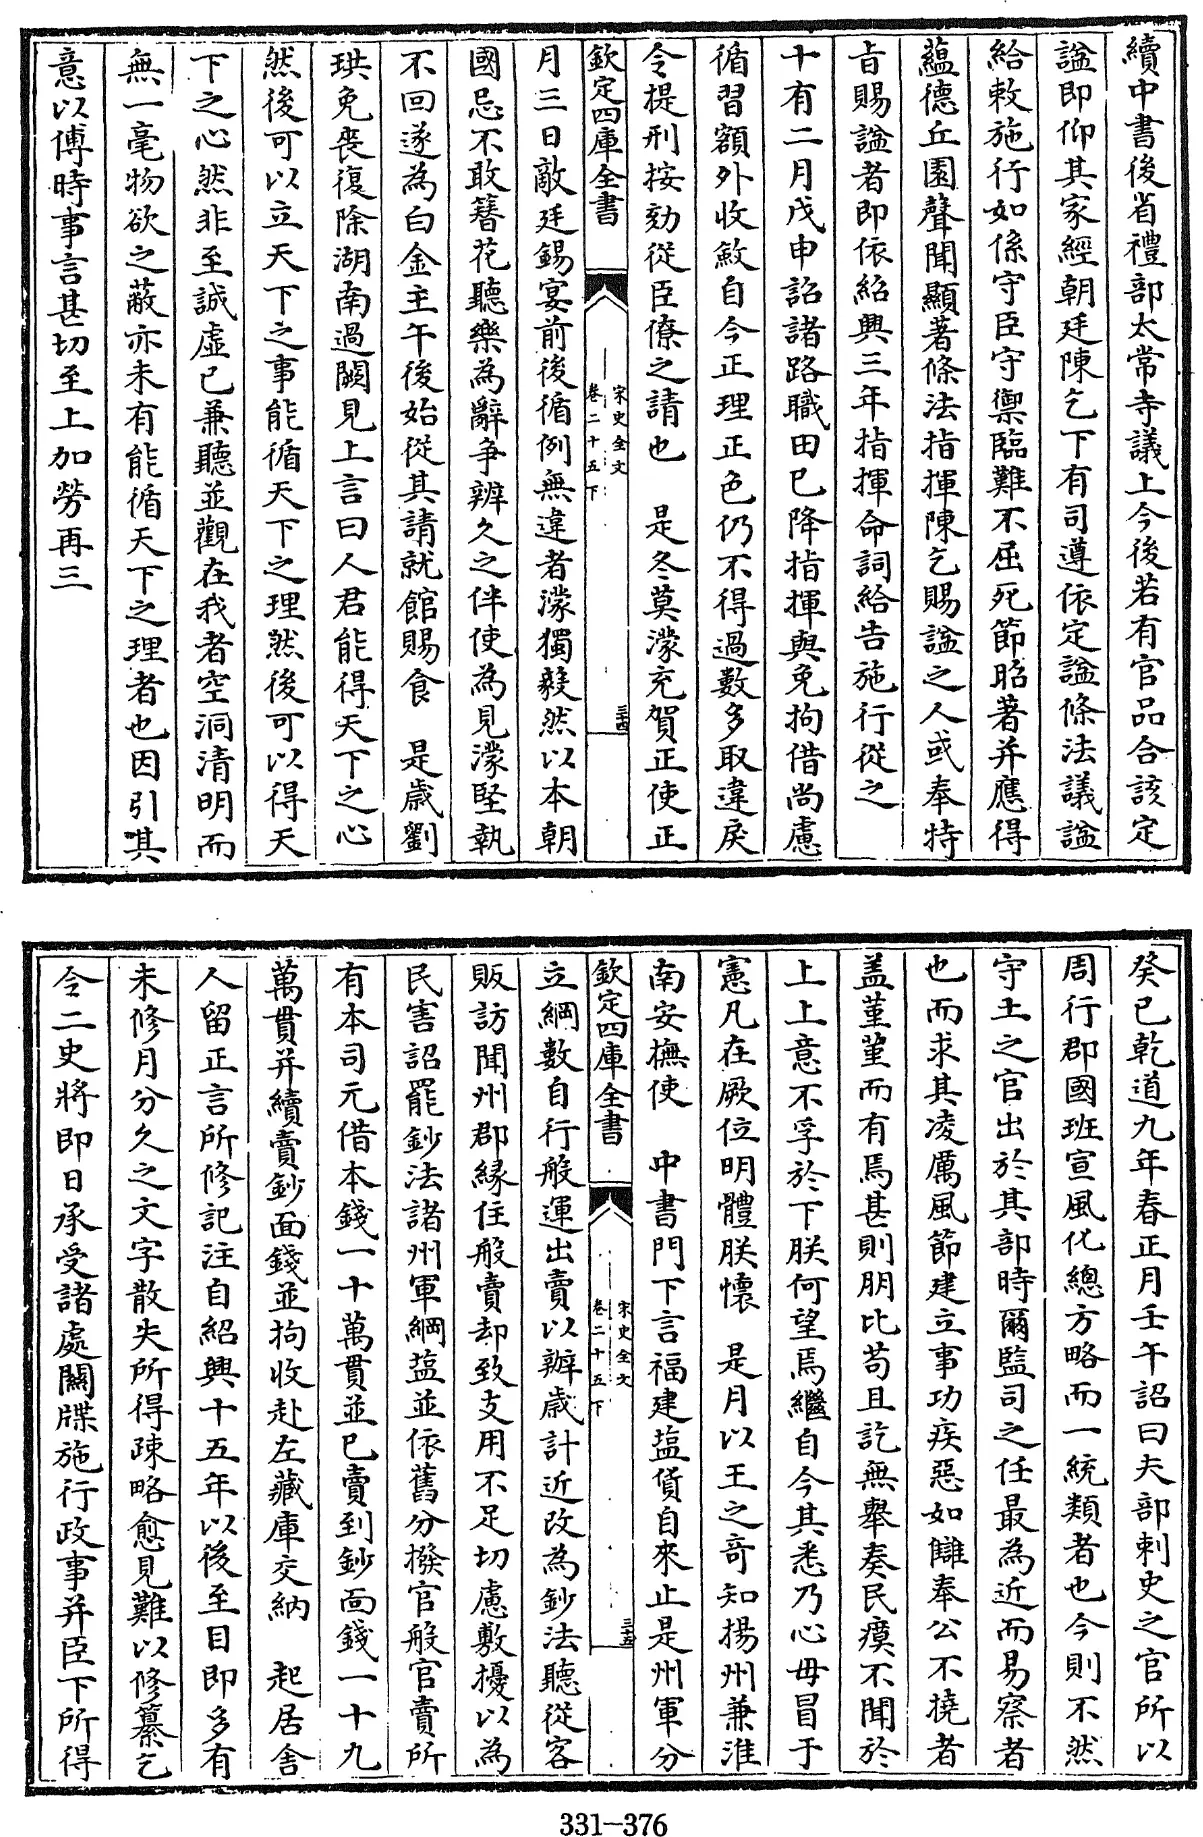 續中書後省禮部太常寺議上今後若有官品合該定
諡即仰其家經朝廷陳乞下有司遵依定諡條法議諡
給敕施行如係守臣守禦臨難不屈死節昭著并應得
蘊德丘園聲聞顯著條法指揮陳乞賜諡之人或奉特
旨賜諡者即依紹興三年指揮命詞給告施行從之
十有二月戊申詔諸路職田已降指揮與免拘借尚慮
循習額外收斂自今正理正色仍不得過數多取違戾
令提刑按劾從臣僚之請也 是冬莫濛充賀正使正
欽定四庫全書
宋史全文
卷二十五下
三十四
月三日敵廷錫宴前後循例無違者濛獨毅然以本朝
國忌不敢簪花聽樂為辭爭辨久之伴使為見濛堅執
不回遂為白金主午後始從其請就館賜食 是歲劉
珙免喪復除湖南過闕見上言曰人君能得天下之心
然後可以立天下之事能循天下之理然後可以得天
下之心然非至誠虛已兼聽並觀在我者空洞清明而
無一毫物欲之蔽亦未有能循天下之理者也因引其
意以傅時事言甚切至上加勞再三
癸已乾道九年春正月壬午詔曰夫部刺史之官所以
周行郡國班宣風化總方略而一統類者也今則不然
守土之官出於其部時爾監司之任最為近而易察者
也而求其凌厲風節建立事功疾惡如讎奉公不撓者
盖堇堇而有焉甚則朋比苟且訖無舉奏民瘼不聞於
上上意不孚於下朕何望焉繼自今其悉乃心毋冒于
憲凡在厥位明體朕懷 是月以王之奇知揚州兼淮
南安撫使 中書門下言福建塩貨自來止是州軍分
欽定四庫全書
宋史全文
卷二十五下
三十五
立綱數自行般運出賣以辦歲計近改為鈔法聽從客
販訪聞州郡緣住般賣却致支用不足切慮敷擾以為
民害詔罷鈔法諸州軍綱塩並依舊分撥官般官賣所
有本司元借本錢一十萬貫並已賣到鈔面錢一十九
萬貫并續賣鈔面錢並拘收赴左藏庫交納 起居舍
人留正言所修記注自紹興十五年以後至目即多有
未修月分久之文字散失所得疎略愈見難以修纂乞
令二史將即日承受諸處關牒施行政事并臣下所得
331-376